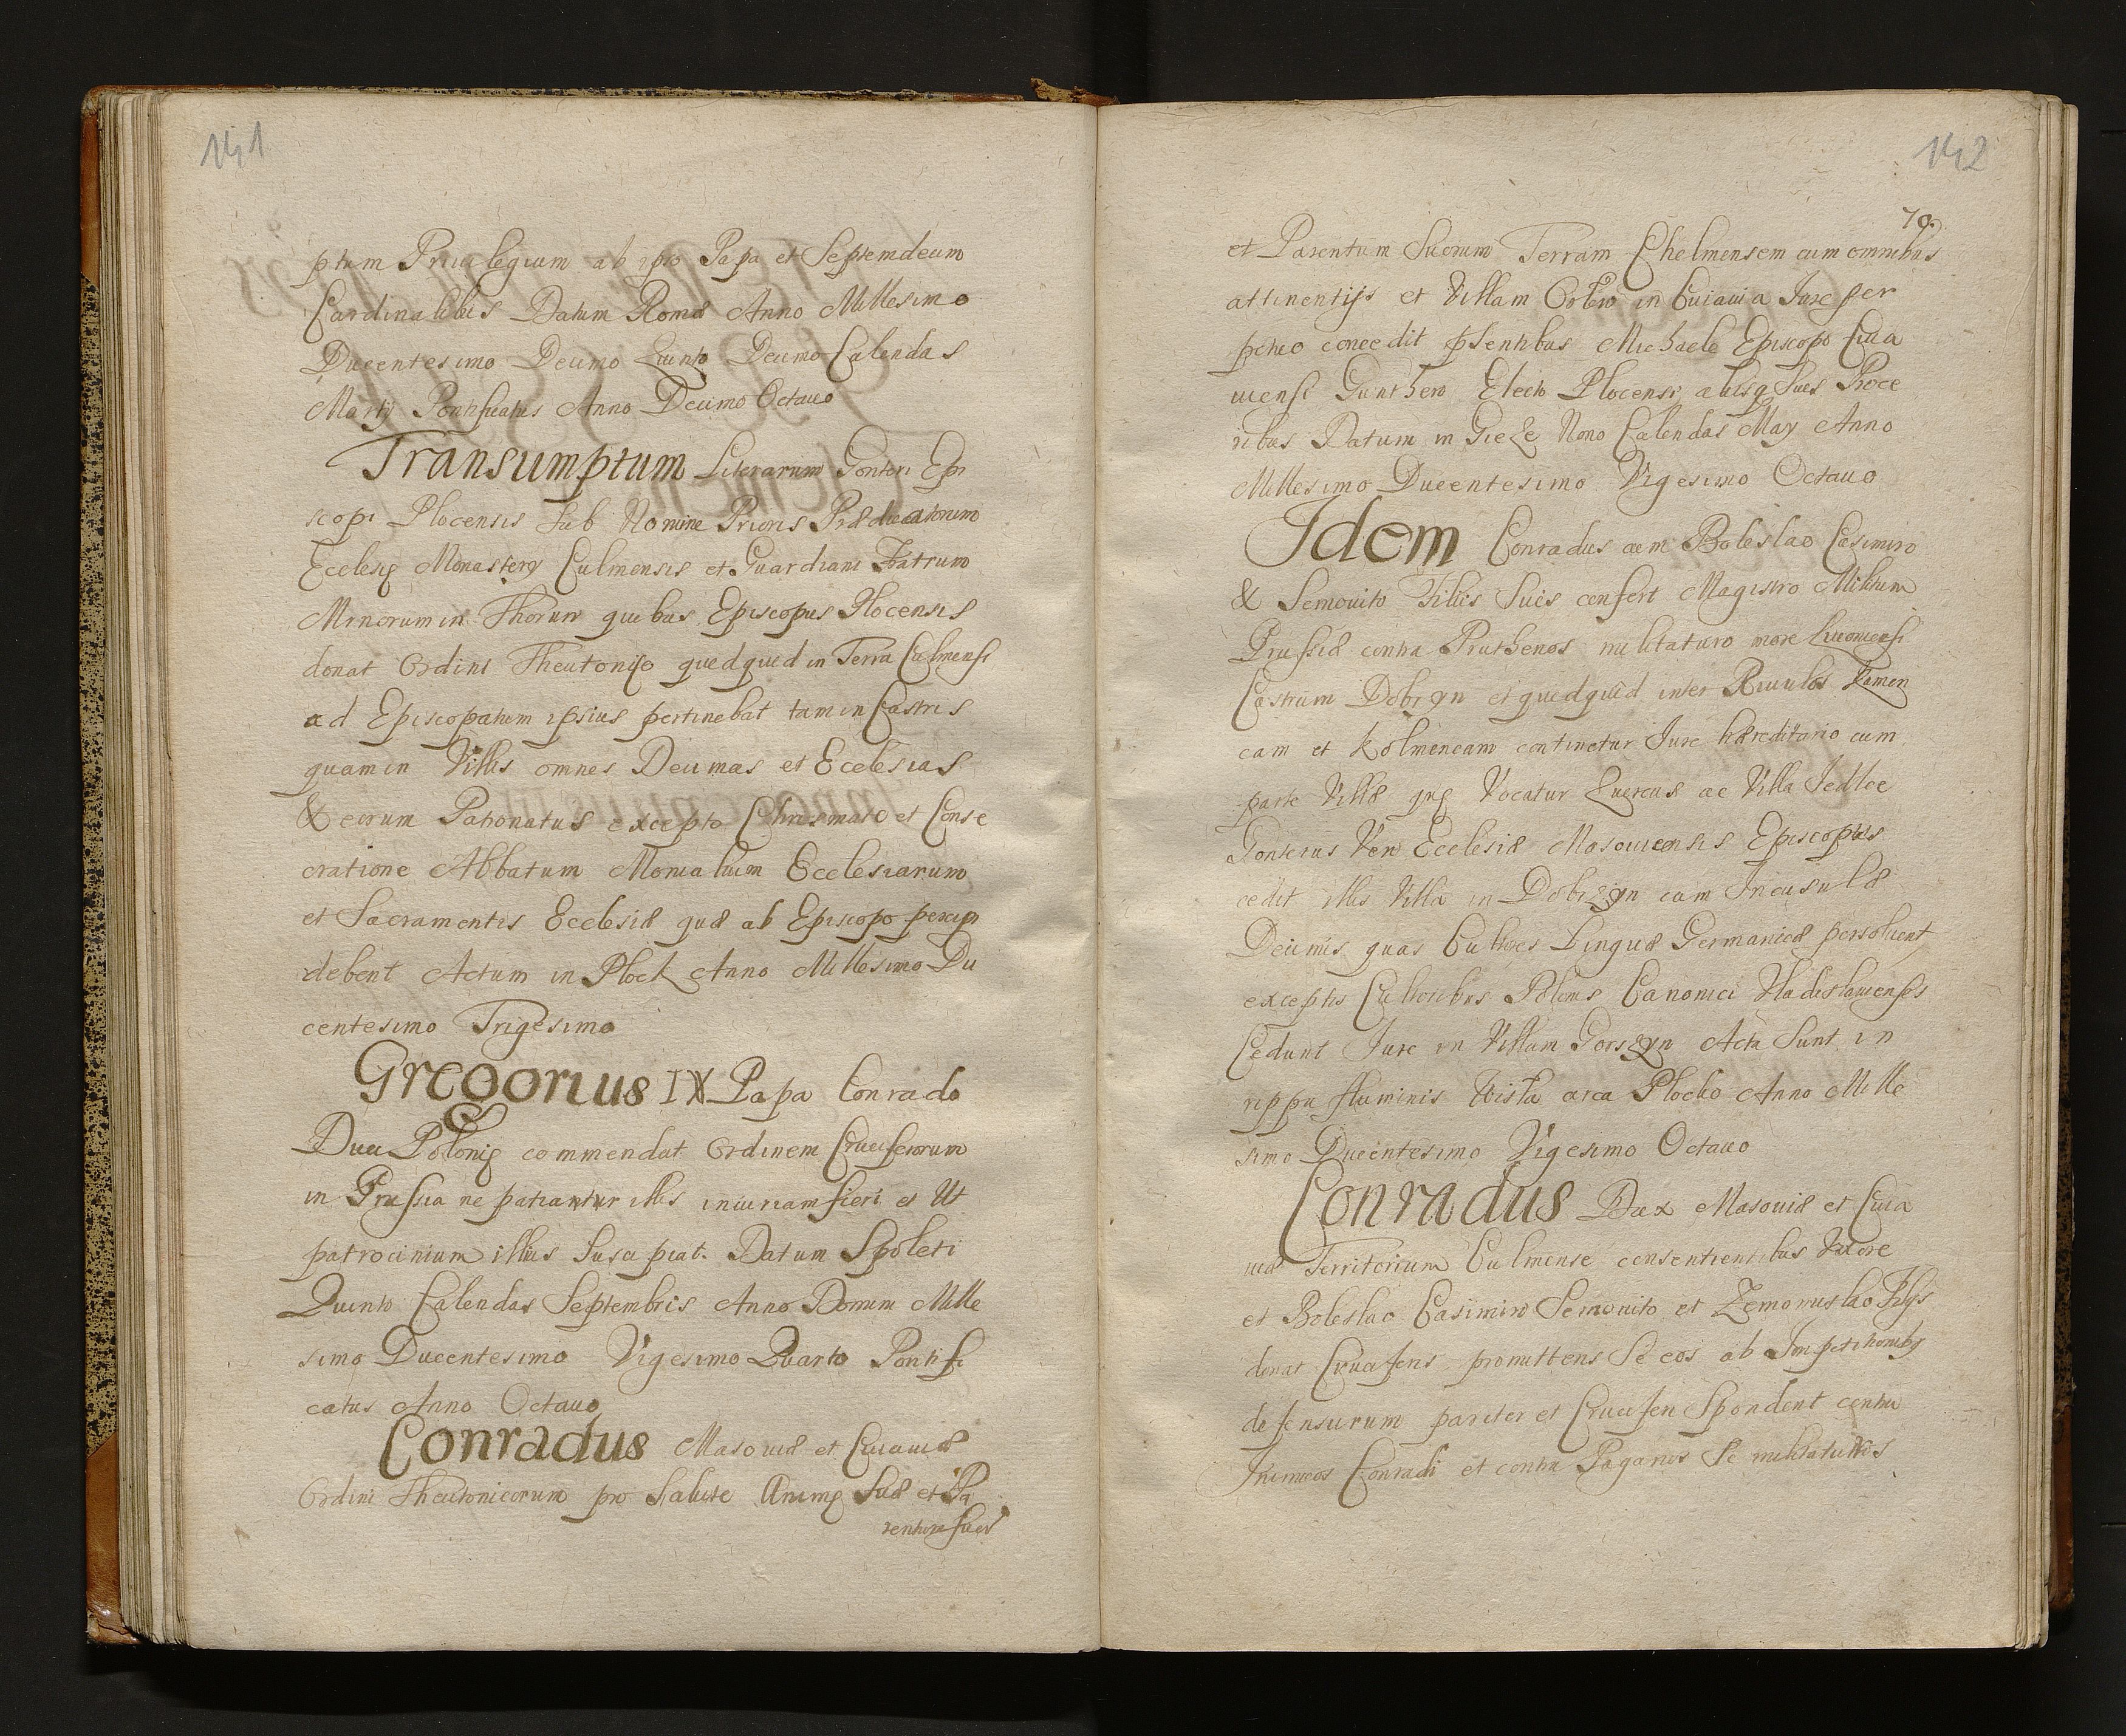 141
ptum Priuilegium ab ipso Papa et Septemdecim
Cardinalibus Datum Romæ Anno Millesimo
Ducentesimo Decimo Quinto Decimo Calendas
Martij Pontificatus Anno Decimo Octauo
Transumptum Literarum Gonteri Epi
scopi Plocensis sub Nomine Prioris Prædicatorum
Ecclesię Monastery Culmensis et Guardiani Fratrum
Minorum in Thorun quibus Episcopus Plocensis
donat Ordini Theutonico quidquid in Terra Culmensi
ad Episcopatum ipsius pertinebat tam in Castris
quam in Villis omnes Decimas et Ecclesias
& eorum Patronatus excepto Chrismate et Conse
cratione Abbatum Monialium Ecclesiarum
et Sacramentis Ecclesiæ quæ ab Episcopo percipi
debent Actum in Plock Anno Millesimo Du
centesimo Trigesimo
Gregorius IX Papa Conrado
Duci Polonię commendat Ordinem Cruciferorum
in Prussia ne patiantur illis iniuriam fieri et Ut
patrocinium illius suscipiat. Datum Spoleti
Quinto Calendas Septembris Anno Domini Mille
simo Ducentesimo Vigesimo Quarto Pontifi
catus Anno Octauo
Conradus Masouiæ et Cuiauiæ
Ordini Theutonicorum pro Salute Animę Suæ et Pa
rentum suor
142
70.
et Parentum Suorum Terram Chelmensem cum omnibus
attinentijs et Villam Orłow in Cuiauia Jure per
petuo concedit pſentibus Michaele Episcopo Cuia
uiensi Gunthero Electo Plocensi alijsq Suis Proce
ribus Datum in Bieze Nono Calendas May Anno
Millesimo Ducentesimo Vigesimo Octauo
Idem Conradus cum Boleslao Casimiro
& Semouito Filiis Suis confert Magistro Militum
Prussiæ contra Pruthenos militaturo more Liuoniensi
Castrum Dobrzyn et quidquid inter Riuulos Kamen
cam et Kolmencam continetur Jure hæreditario cum
parte Villæ quę Vocatur Quercus ac Villa Jedlce
Gonterus Ven Ecclesiæ Masouiensis Episcopus
cedit illis Villa in Dobrzyn cum Incusulæ
Decimis quas Cultores Linguæ Germanicæ persoluent
exceptis Cultoribus Polonis Canonici Vladislauienses
Cedunt Jure in Villam Gorszyn Acta Sunt in
rippa fluminis Wisła circa Plocko Anno Mille
simo Ducentesimo Vigesimo Octauo
Conradus Dux Masouiæ et Cuia
uiæ Territorium Culmense consentientibus Vxore
et Boleslao Casimiro Semouito et Zemomislao Filijs
donat Cruciferis promittens Se eos ab Impetitionibꝫ
defensurum pariter et Cruciferi Spondent contra
Inimicos Conradi et contra Paganos Se militaturos